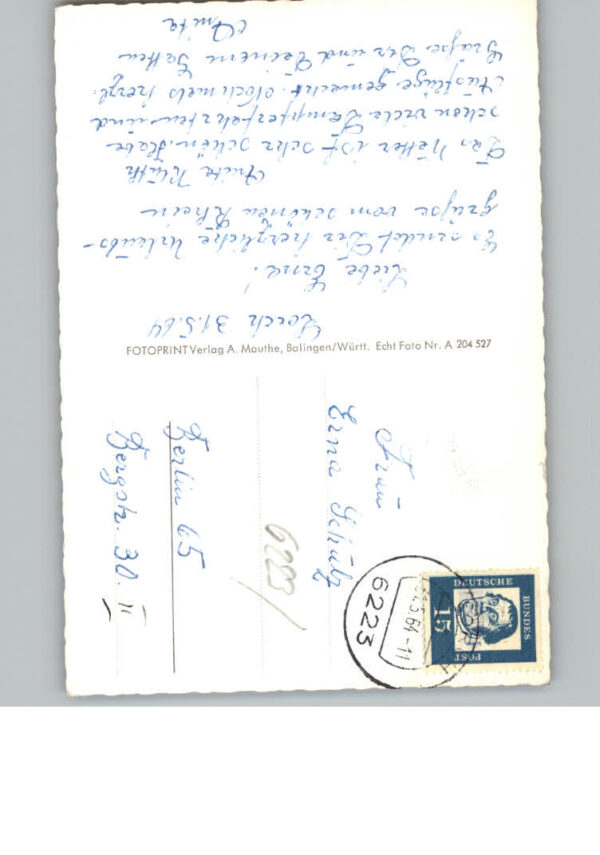 Lorch 31.5.64
Liebe Erna!
Es sendet Dir herzliche Urlaubs-
grüße vom schönen Rhein
Anita
Das Wetter ist sehr schön. Habe
schon viele Dampferfahrten und
Ausflüge gemacht. Nochmals herzl.
Grüße Dir und Deinem Gatten
Anita
FOTOPRINT Verlag A. Mauthe, Balingen/Württ. Echt Foto Nr. A 204 527
Frau
Erna Schulz
6223/
Berlin 65
Bergstr. 30. II
6223
31.5.64-11
DEUTSCHE
BUNDES
POST
15